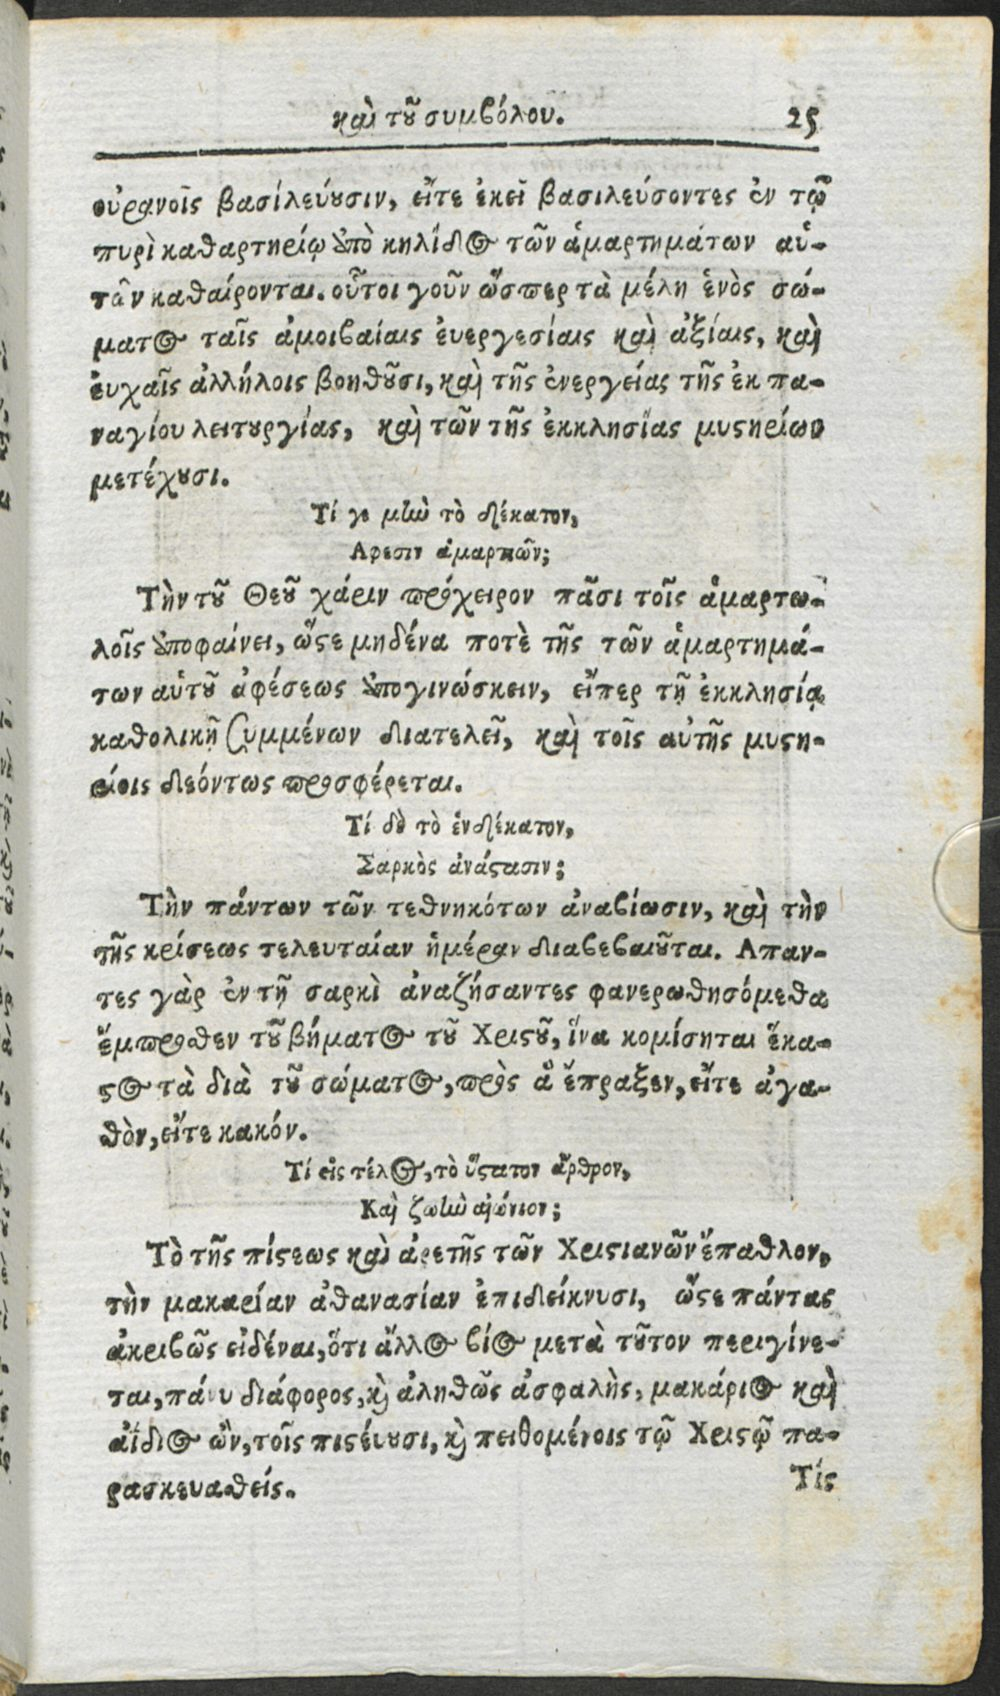 καὶ τοῦ συμβόλου. 25
οὐρανοῖς βασιλεύουσιν, εἴτε ἐκεῖ βασιλεύσοντες ἐν τῷ
πυρὶ καθαρτηρίῳ ὑπὸ κηλίδος τῶν ἁμαρτημάτων αὐ-
τῶν καθαίρονται. οὗτοι γοῦν ὥσπερ τὰ μέλη ἑνὸς σώ-
ματος ταῖς ἀμοιβαίαις ἐυεργεσίαις καὶ ἀξίαις, καὶ
ἐυχαῖς ἀλλήλοις βοηθοῦσι, καὶ τῆς ἐνεργείας τῆς ἐκ πα-
ναγίου λειτουργίας, καὶ τῶν τῆς ἐκκλησίας μυστηρίων
μετέχουσι.
Τί γε μὴν τὸ δέκατον,
Αφεσιν ἁμαρτιῶν;
Τὴν τοῦ Θεοῦ χάριν πρόχειρον πᾶσι τοῖς ἁμαρτω-
λοῖς ὑποφαίνει, ὥστε μηδένα ποτὲ τῆς τῶν ἁμαρτημά-
των αὑτοῦ ἀφέσεως ἀπογινώσκειν, εἴπερ τῇ ἐκκλησίᾳ
καθολικῇ συμμένων διατελεῖ, καὶ τοῖς αὐτῆς μυστη-
ρίοις δεόντως προσφέρεται.
Τί δὲ τὸ ἑνδέκατον,
Σαρκὸς ἀνάστασιν;
Τὴν πάντων τῶν τεθνηκότων ἀναβίωσιν, καὶ τὴν
τῆς κρίσεως τελευταίαν ἡμέραν διαβεβαιοῦται. Απαν-
τες γὰρ ἐν τῇ σαρκὶ ἀναζήσαντες φανερωθησόμεθα
ἔμπροθεν τοῦ βήματος τοῦ Χριστοῦ, ἵνα κομίσηται ἕκα-
στος τὰ διὰ τοῦ σώματος, πρὸς ἃ ἔπραξεν, εἴτε ἀγα-
θὸν, εἴτε κακόν.
Τί εἰς τέλος, τὸ ὕστατον ἄρθρον,
Καὶ ζωὴν αἰώνιον;
Τὸ τῆς πίστεως καὶ ἀρετῆς τῶν Χριστιανῶν ἔπαθλον,
τὴν μακαρίαν ἀθανασίαν ἐπιδείκνυσι, ὥστε πάντας
ἀκριβῶς εἰδέναι, ὅτι ἄλλος βίος μετὰ τοῦτον περιγίνε-
ται, πάνυ διάφορος, καὶ ἀληθῶς ἀσφαλὴς, μακάριος καὶ
ἀΐδιος ὢν, τοῖς πιστέυουσι, καὶ πειθομένοις τῷ Χριστῷ πα-
ρασκευαθείς.
Τίς